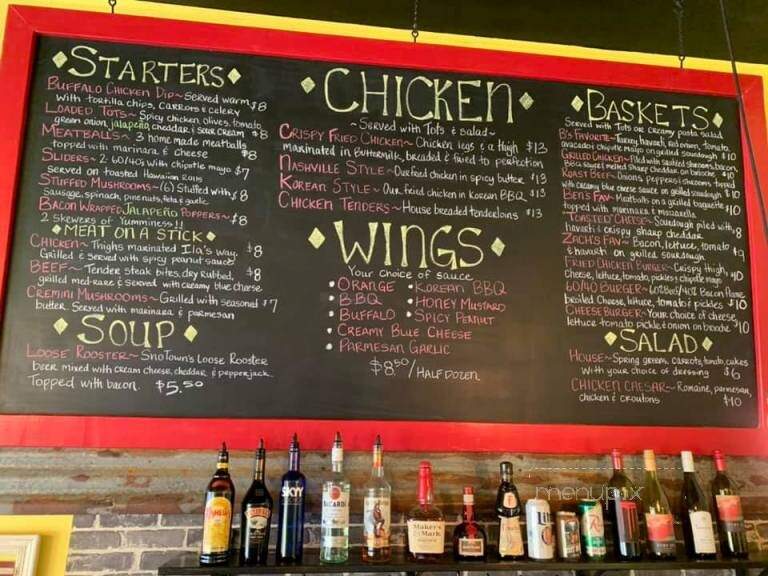 STARTERS
BUFFALO CHICKEN DIP~ Served warm $8
with tortilla chips, carrots & celery
LOADED TOTS~ Spicy chicken, olives, tomato,
green onion, jalapeño, cheddar & sour cream $8
MEATBALLS~ 3 home made meatballs
topped with marinara & cheese $8
SLIDERS~ 2 60/40s with chipotle mayo $7
served on toasted Hawaiian rolls
STUFFED MUSHROOMS~(6) Stuffed with $8
sausage, spinach, pine nuts, feta & garlic
BACON WRAPPED JALAPEÑO POPPERS~ $8
2 skewers of Yumminess!!
MEAT ON A STICK
CHICKEN~ Thighs marinated Ila's way. $8
Grilled & served with spicy peanut sauce
BEEF~ Tender steak bites, dry rubbed, $8
grilled med-rare & served with creamy blue cheese
CREMINI MUSHROOMS~ Grilled with seasoned $7
butter. Served with marinara & parmesan
SOUP
LOOSE ROOSTER~ SnoTown's Loose Rooster
beer mixed with cream cheese, cheddar & pepperjack.
Topped with bacon. $5.50
CHICKEN
~Served with Tots & salad~
CRISPY FRIED CHICKEN~ Chicken legs & a thigh $13
marinated in Buttermilk, breaded & fried to perfection
NASHVILLE STYLE~ Our fried chicken in spicy butter $13
KOREAN STYLE~ Our fried chicken in Korean BBQ $13
CHICKEN TENDERS~ House breaded tenderloins $13
WINGS
Your choice of sauce
• ORANGE • KOREAN BBQ
• BBQ • HONEY MUSTARD
• BUFFALO • SPICY PEANUT
• CREAMY BLUE CHEESE
• PARMESAN GARLIC
$8.50/HALF DOZEN
BASKETS
Served with Tots or creamy pasta salad
B'S FAVORITE~ Turkey, havarti, red onion, tomato,
avocado & chipotle mayo on grilled sourdough $10
GRILLED CHICKEN~ Piled with sautéed shrooms, bacon,
BBQ sauce & melted sharp cheddar on brioche $10
ROAST BEEF~ Onions, peppers & shrooms, topped
with creamy blue cheese sauce on grilled sourdough $10
BEN'S FAV~ Meatballs on a grilled baguette
topped with marinara & mozzarella $10
TOASTED CHEESE~ Sourdough piled with
havarti & crispy sharp cheddar $8
ZACH'S FAV~ Bacon, lettuce, tomato
& havarti on grilled sourdough $9
FRIED CHICKEN BURGER~ Crispy thigh, $10
cheese, lettuce, tomato, pickles & chipotle mayo
60/40 BURGER~ 60% Beef/40% Bacon flame
broiled Cheese, lettuce, tomato & pickles $10
CHEESEBURGER~ Your choice of cheese,
lettuce tomato pickle & onion on brioche $10
SALAD
HOUSE~ Spring greens, carrots, tomato, cukes
With your choice of dressing $6
CHICKEN CAESAR~ Romaine, parmesan,
chicken & croutons $10
KAHLUA
BAILEYS
SKYY
BACARDI
Maker's
Mark
menupix